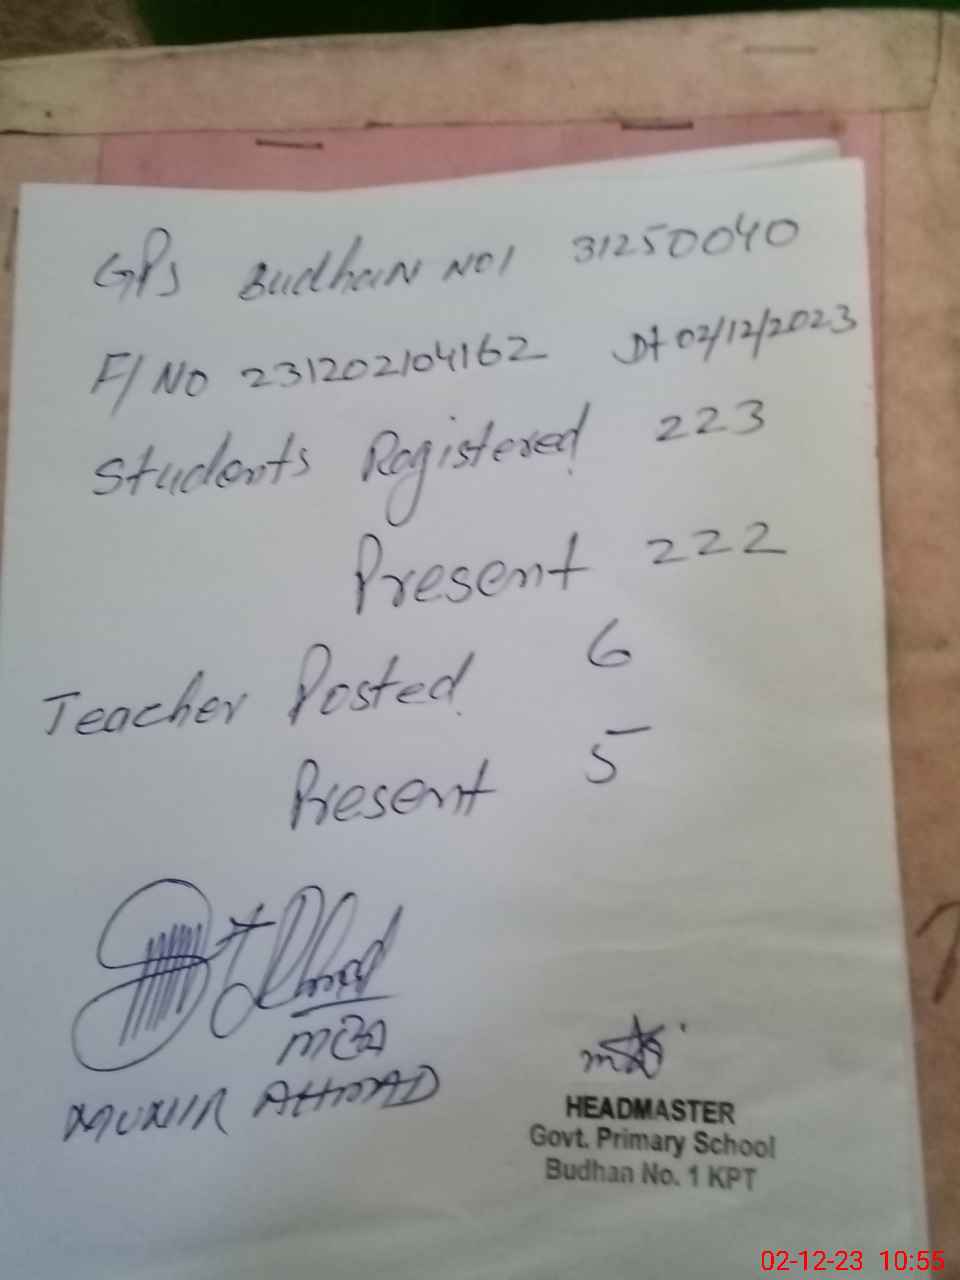 GPS Budhan NO1 31250040
F/NO 231202104162 Dt 02/12/2023
Students Registered 223
Present 222
Teacher Posted 6
Present 5
MUNIR AHMAD
HEADMASTER
Govt. Primary School
Budhan No. 1 KPT
02-12-23 10:55